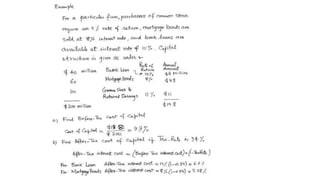 Example
For a particular firm, purchasers of common stock
require an 11% rate of return, mortgage bonds are
sold at 8% interest rate, and bank loans are
available at interest rate of 10%. Capital
structure is given as under:
Rate of Return Annual Amount
$ 40 million Bank Loan 10% $ 4 million
60 Mortgage Bonds 8% $ 4.8
100 Common Stock & Retained Earnings 11% $ 11
$ 200 million $ 19.8
a) Find Before-Tax cost of capital
Cost of Capital = = 9.9%
b) Find After-Tax cost of capital if Tax-Rate is 34%
After-Tax interest cost = (Before-Tax interest cost) × (1-TaxRate)
For Bank Loan After-Tax interest cost = 10%(1-0.34) = 6.6%
For Mortgage Bonds After-Tax interest cost = 8%(1-0.34) = 5.28%